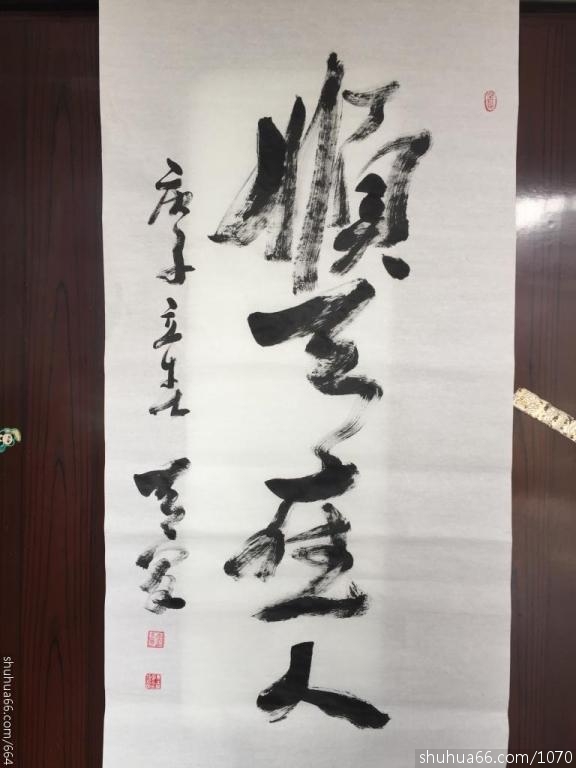 順天應人
庚子立
shuhua66.com/664
shuhua66.com/1070